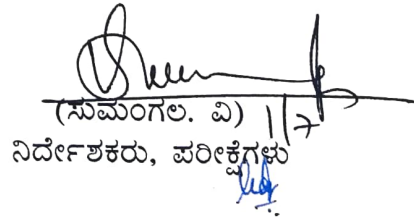 (ಸುಮಂಗಲ. ವಿ) 1/7
ನಿರ್ದೇಶಕರು, ಪರೀಕ್ಷೆಗಳು